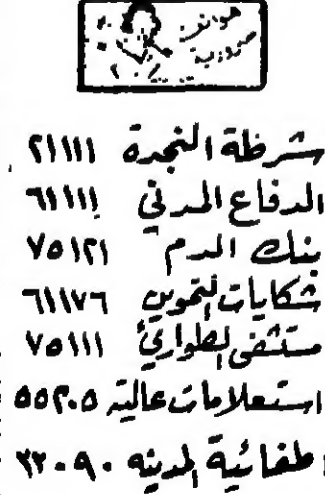 هواتف
ضرورية
شرطة النجدة ٢١١١١
الدفاع المدني ٦١١١١
بنك الدم ٧٥١٢١
شكايات التموين ٦١١٧٦
مستشفى الطوارئ ٧٥١١١
استعلامات عاليه ٥٥٢٠٥
اطفائية المدينه ٢٢٠٩٠